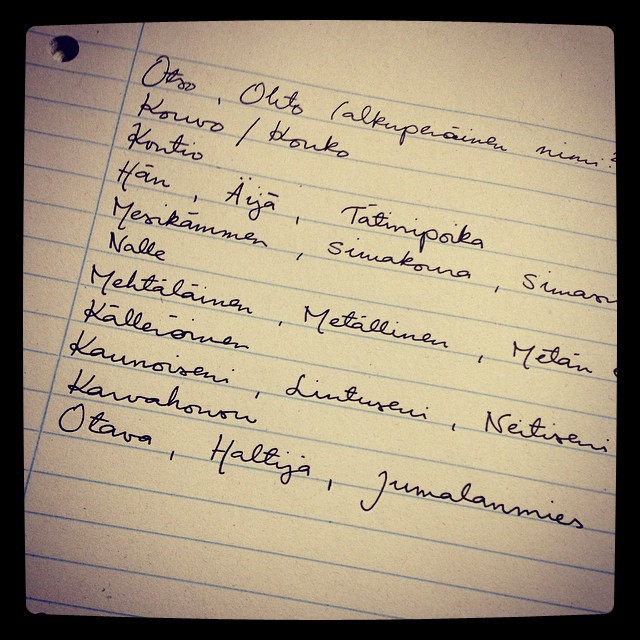 Otso, Ohto (alkuperäinen nimi?
Kouvo / Kouko
Kontio
Hän, Äijä, Tätinipoika
Mesikämmen, simakoura, simasu
Nalle
Mehtäläinen, Metällinen, Metän
Källeröinen
Kaunoiseni, Lintuseni, Neitiseni
Karvahousu
Otava, Haltija, Jumalanmies